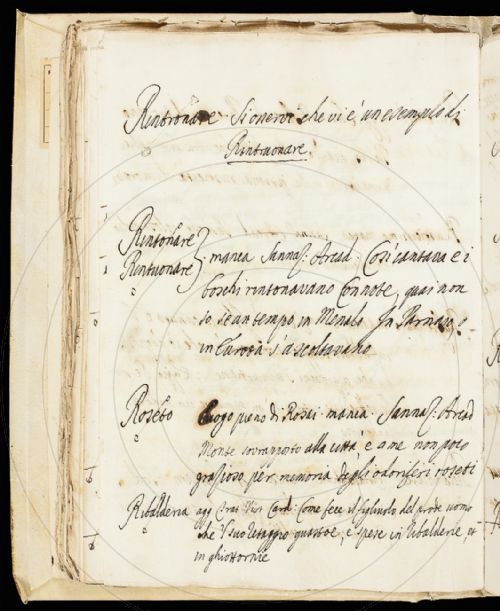 Rintronare. Si osservi che vi è un esempio di
Rintruonare
Rintonare
Rintuonare
manca Sannaz: Arcad. Così cantava e i
boschi rintonavano Con note, quai non
so se an tempo in Menalo In Parnaso
in Eurota s'ascoltavano
Roseto luogo pieno di Rosai. manca. Sannaz: Arcad
Monte sovrapposto alla città, e a me non poco
grazioso per memoria degli odoriferi roseti
Ribalderia agg. Come fece il figliuolo del prode uomo
che 'l suo retaggio guastoe, e spese in ribalderie, et
in ghiottornie